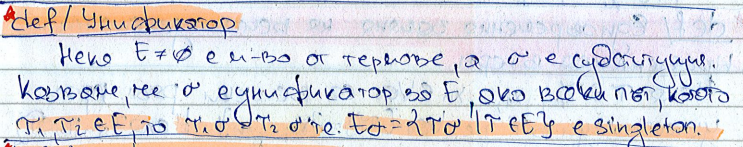 def/ Унификатор
Нека E≠∅ е м-во от термове, а σ е субституция.
Казваме, че σ е унификатор за E, ако всеки път, когато
τ₁, τ₂ ∈ E, то τ₁σ = τ₂σ т.е. Eσ = {τσ | τ∈E} е singleton.